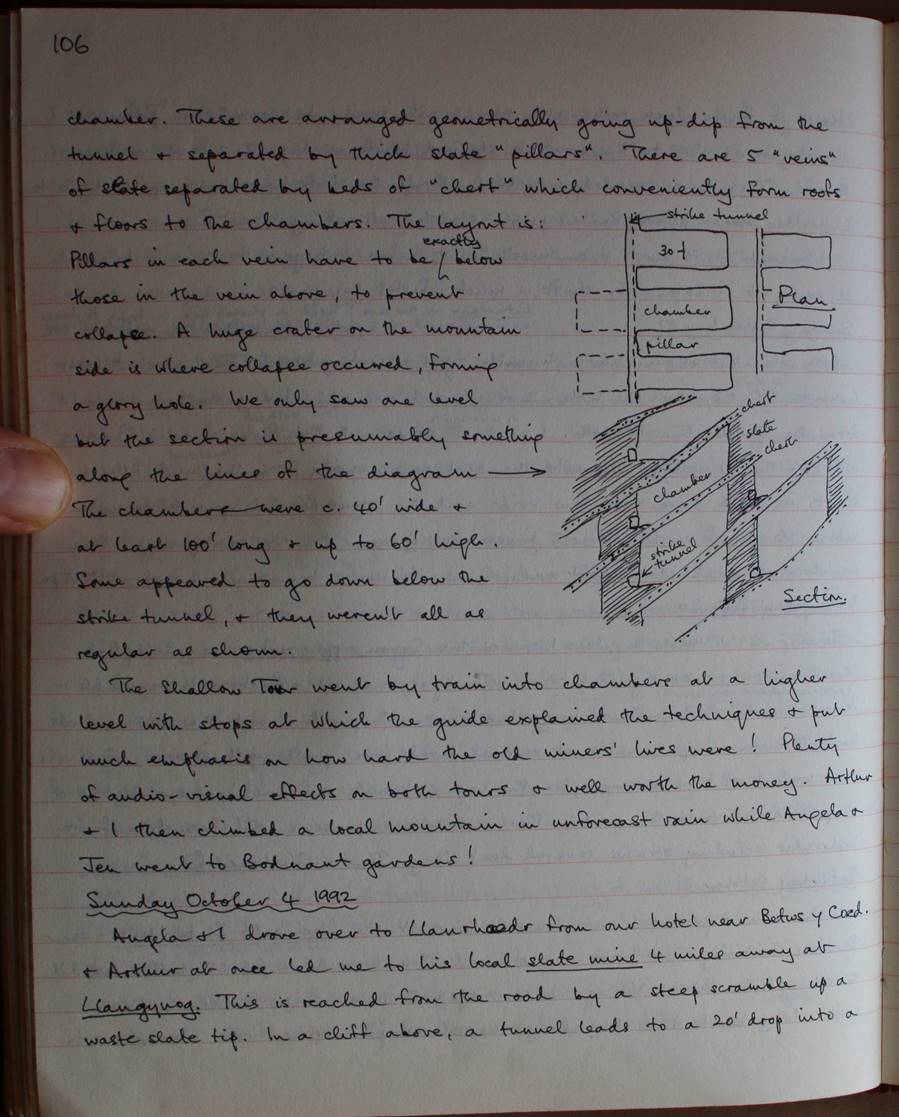 106
chamber. These are arranged geometrically going up-dip from the
tunnel + separated by thick slate "pillars". There are 5 "veins"
of slate separated by beds of "chert" which conveniently form roofs
+ floors to the chambers. The layout is:
Pillars in each vein have to be exactly below
those in the vein above, to prevent
collapse. A huge crater on the mountain
side is where collapse occurred, forming
a glory hole. We only saw one level
but the section is presumably something
along the lines of the diagram →
The chambers were c. 40' wide +
at least 100' long + up to 60' high.
Some appeared to go down below the
strike tunnel, + they weren't all as
regular as shown.
strike tunnel
30
chamber
pillar
Plan
chert
slate
chert
chamber
strike
tunnel
Section.
The Shallow Tour went by train into chambers at a higher
level with stops at which the guide explained the techniques + put
much emphasis on how hard the old miners' lives were! Plenty
of audio-visual effects on both tours + well worth the money. Arthur
+ I then climbed a local mountain in unforecast rain while Angela +
Jen went to Bodnant gardens!
Sunday October 4 1992
Angela + I drove over to Llanrhaedr from our hotel near Betws y Coed.
+ Arthur at once led me to his local slate mine 4 miles away at
Llangynog. This is reached from the road by a steep scramble up a
waste slate tip. In a cliff above, a tunnel leads to a 20' drop into a